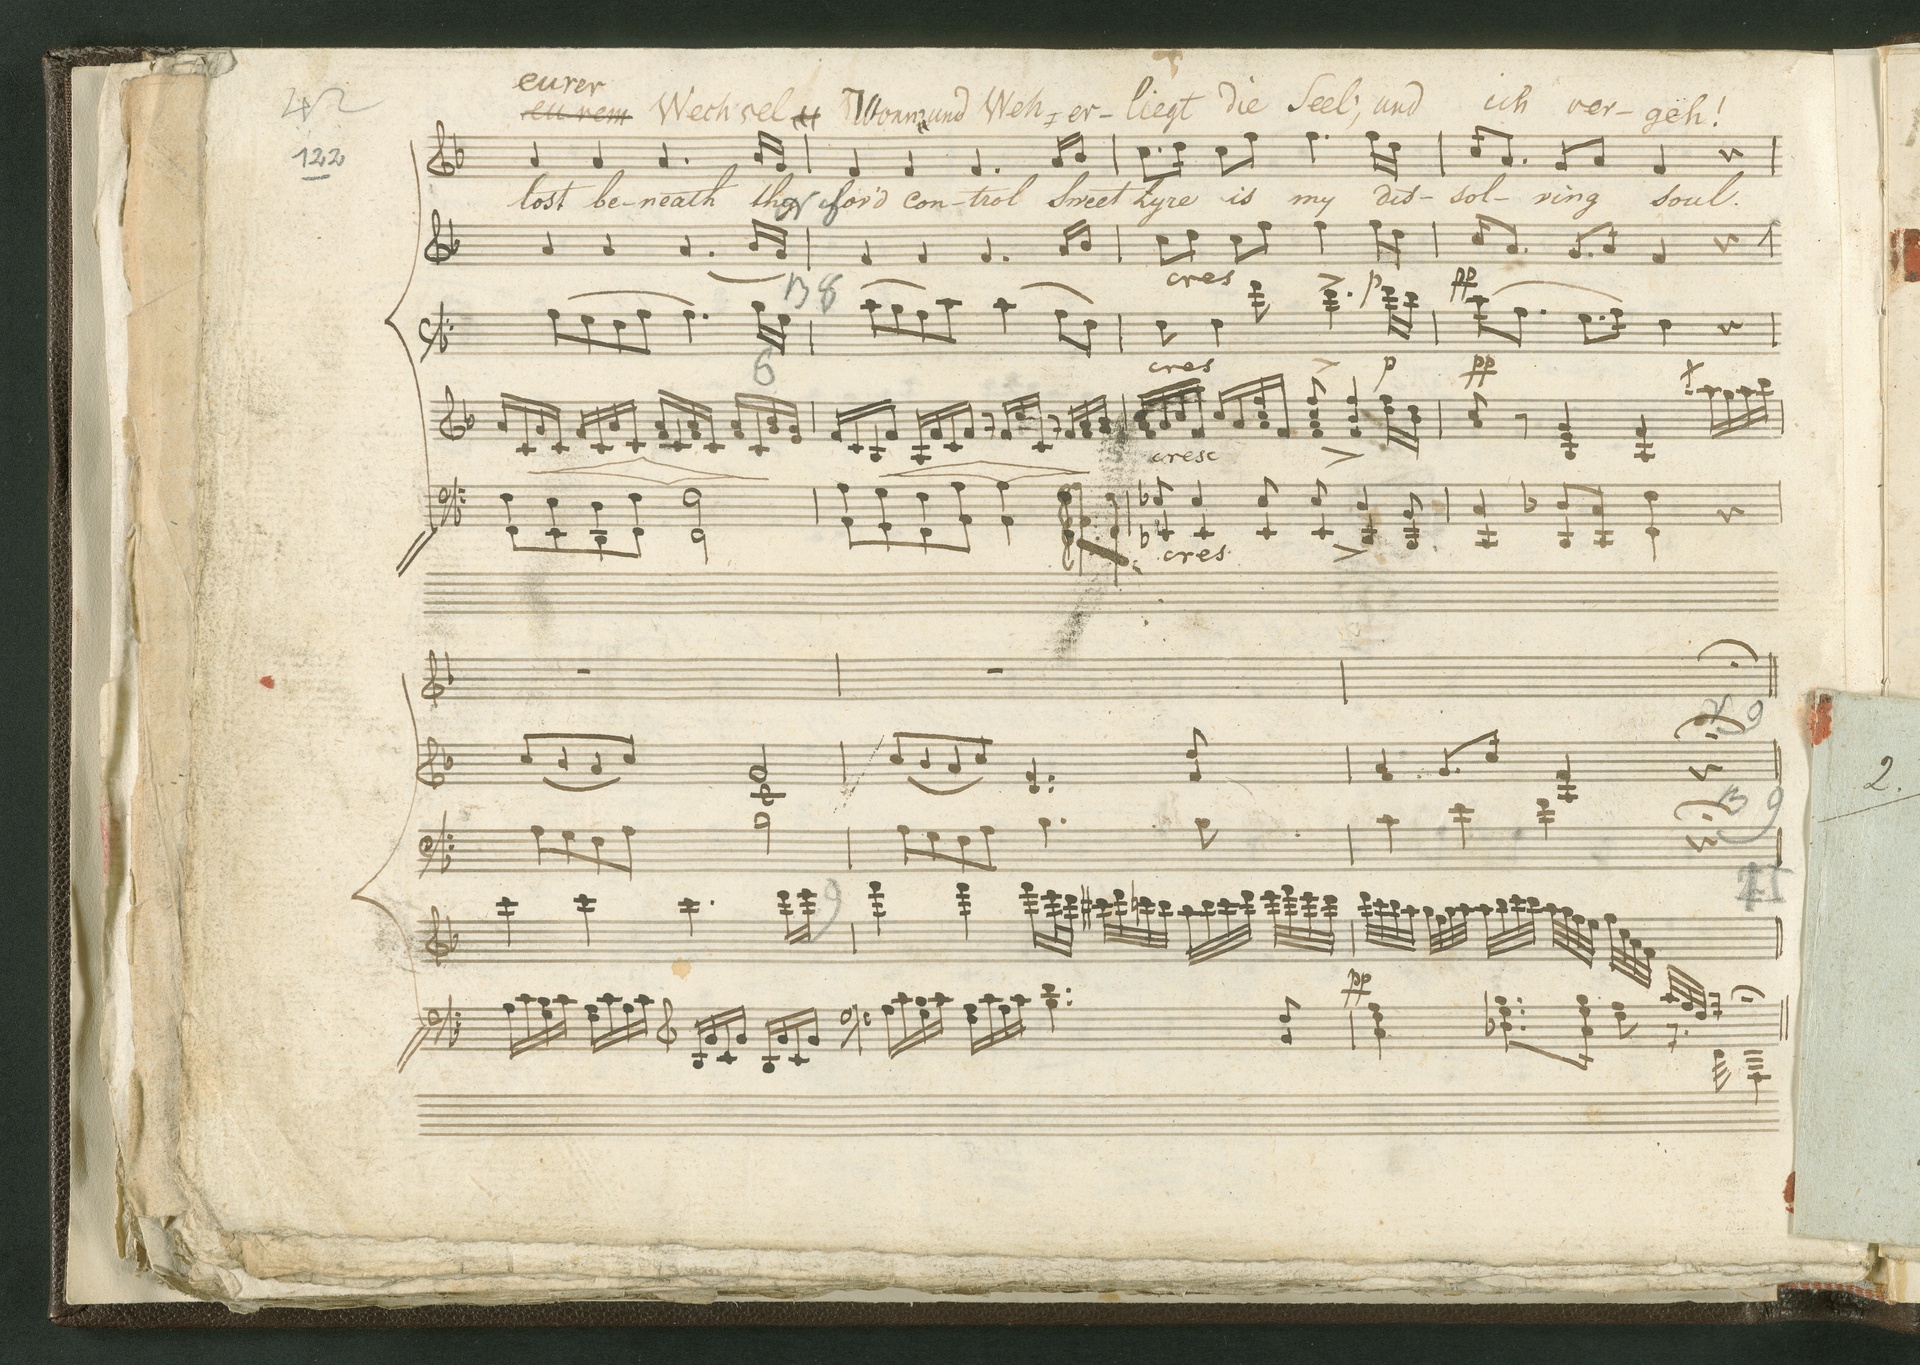 eurer
eurem Wechsel Wonn' und Weh, er- liegt die Seel', und ich ver- geh!
122
lost be-neath thy con-trol Sweet Lyre is my dis- sol- ving soul.
cres > p pp
B 8
cres > p pp
6
cresc >
cres >
9
B 9
2.
9
pp